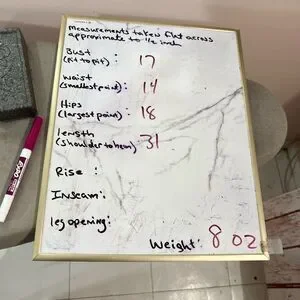 Measurements taken flat across
approximate to 1/2 inch
Bust
(Pit to pit) : 17
Waist
(smallest point) : 14
Hips
(largest point) : 18
length
(shoulder to hem) : 31
Rise :
Inseam :
leg opening :
Weight : 8 oz
EXPO